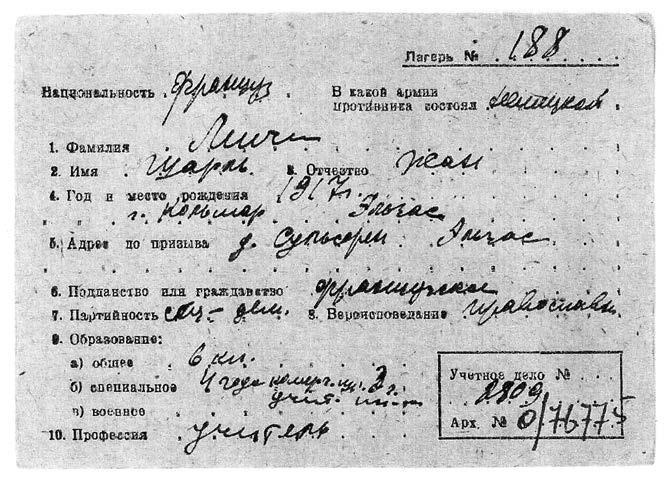 Лагерь № 188
Национальность француз
В какой армии противника состоял немецкой
1. Фамилия
2. Имя Шарль 3. Отчество Жан
4. Год и место рождения 1917 г.
г. Кольмар Эльзас
5. Адрес до призыва д. Эльзас
6. Подданство или гражданство французское
7. Партийность соц-дем. 8. Вероисповедание православн.
9. Образование:
а) общее 6 кл.
б) специальное 4 года
в) военное
10. Профессия учитель
Учетное дело №
2809
Арх. № 0/76775